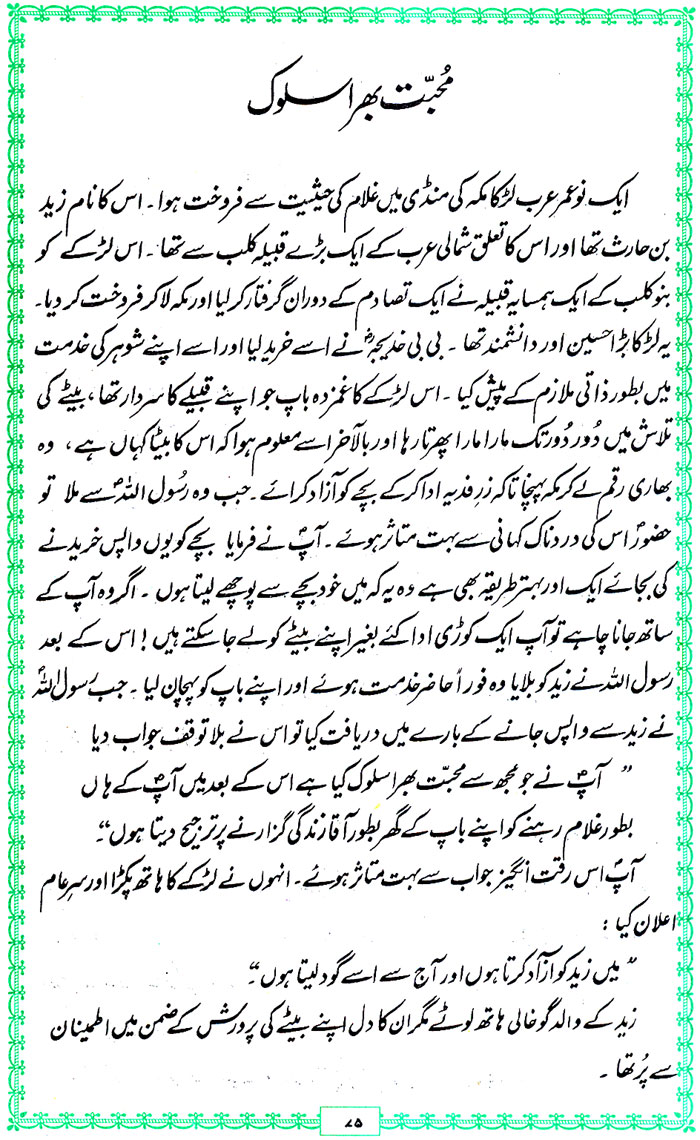 محبّت بھرا سلوک
ایک نوعمر عرب لڑکا مکہ کی منڈی میں غلام کی حیثیت سے فروخت ہوا۔ اس کا نام زید
بن حارث تھا اور اس کا تعلق شمالی عرب کے ایک بڑے قبیلہ کلب سے تھا۔ اس لڑکے کو
بنو کلب کے ایک ہمسایہ قبیلہ نے ایک تصادم کے دوران گرفتار کر لیا اور مکہ لا کر فروخت کر دیا۔
یہ لڑکا بڑا حسین اور دانشمند تھا۔ بی بی خدیجہؓ نے اسے خرید لیا اور اسے اپنے شوہر کی خدمت
میں بطور ذاتی ملازم کے پیش کیا۔ اس لڑکے کا غمزدہ باپ جو اپنے قبیلے کا سردار تھا، بیٹے کی
تلاش میں دُور دُور تک مارا مارا پھرتا رہا اور بالآخر اسے معلوم ہوا کہ اس کا بیٹا کہاں ہے، وہ
بھاری رقم لے کر مکہ پہنچا تاکہ زرِ فدیہ ادا کر کے بچے کو آزاد کرائے۔ جب وہ رسُول اللہؐ سے ملا تو
حضورؐ اس کی دردناک کہانی سے بہت متاثر ہوئے۔ آپؐ نے فرمایا بچے کو یوں واپس خریدنے
کی بجائے ایک اور بہتر طریقہ بھی ہے وہ یہ کہ میں خود بچے سے پوچھے لیتا ہوں۔ اگر وہ آپ کے
ساتھ جانا چاہے تو آپ ایک کوڑی ادا کئے بغیر اپنے بیٹے کو لے جا سکتے ہیں! اس کے بعد
رسول اللہ نے زید کو بلایا وہ فوراً حاضر خدمت ہوئے اور اپنے باپ کو پہچان لیا۔ جب رسُول اللہؐ
نے زید سے واپس جانے کے بارے میں دریافت کیا تو اس نے بلا توقف جواب دیا
”آپؐ نے جو مجھ سے محبّت بھرا سلوک کیا ہے اس کے بعد میں آپؐ کے ہاں
بطور غلام رہنے کو اپنے باپ کے گھر بطور آقا زندگی گزارنے پر ترجیح دیتا ہوں“۔
آپؐ اس رقت انگیز جواب سے بہت متاثر ہوئے۔ انہوں نے لڑکے کا ہاتھ پکڑا اور سرِعام
اعلان کیا :
”میں زید کو آزاد کرتا ہوں اور آج سے اسے گود لیتا ہوں“۔
زید کے والد گو خالی ہاتھ لوٹے مگر ان کا دل اپنے بیٹے کی پرورش کے ضمن میں اطمینان
سے پُر تھا۔
۷۵